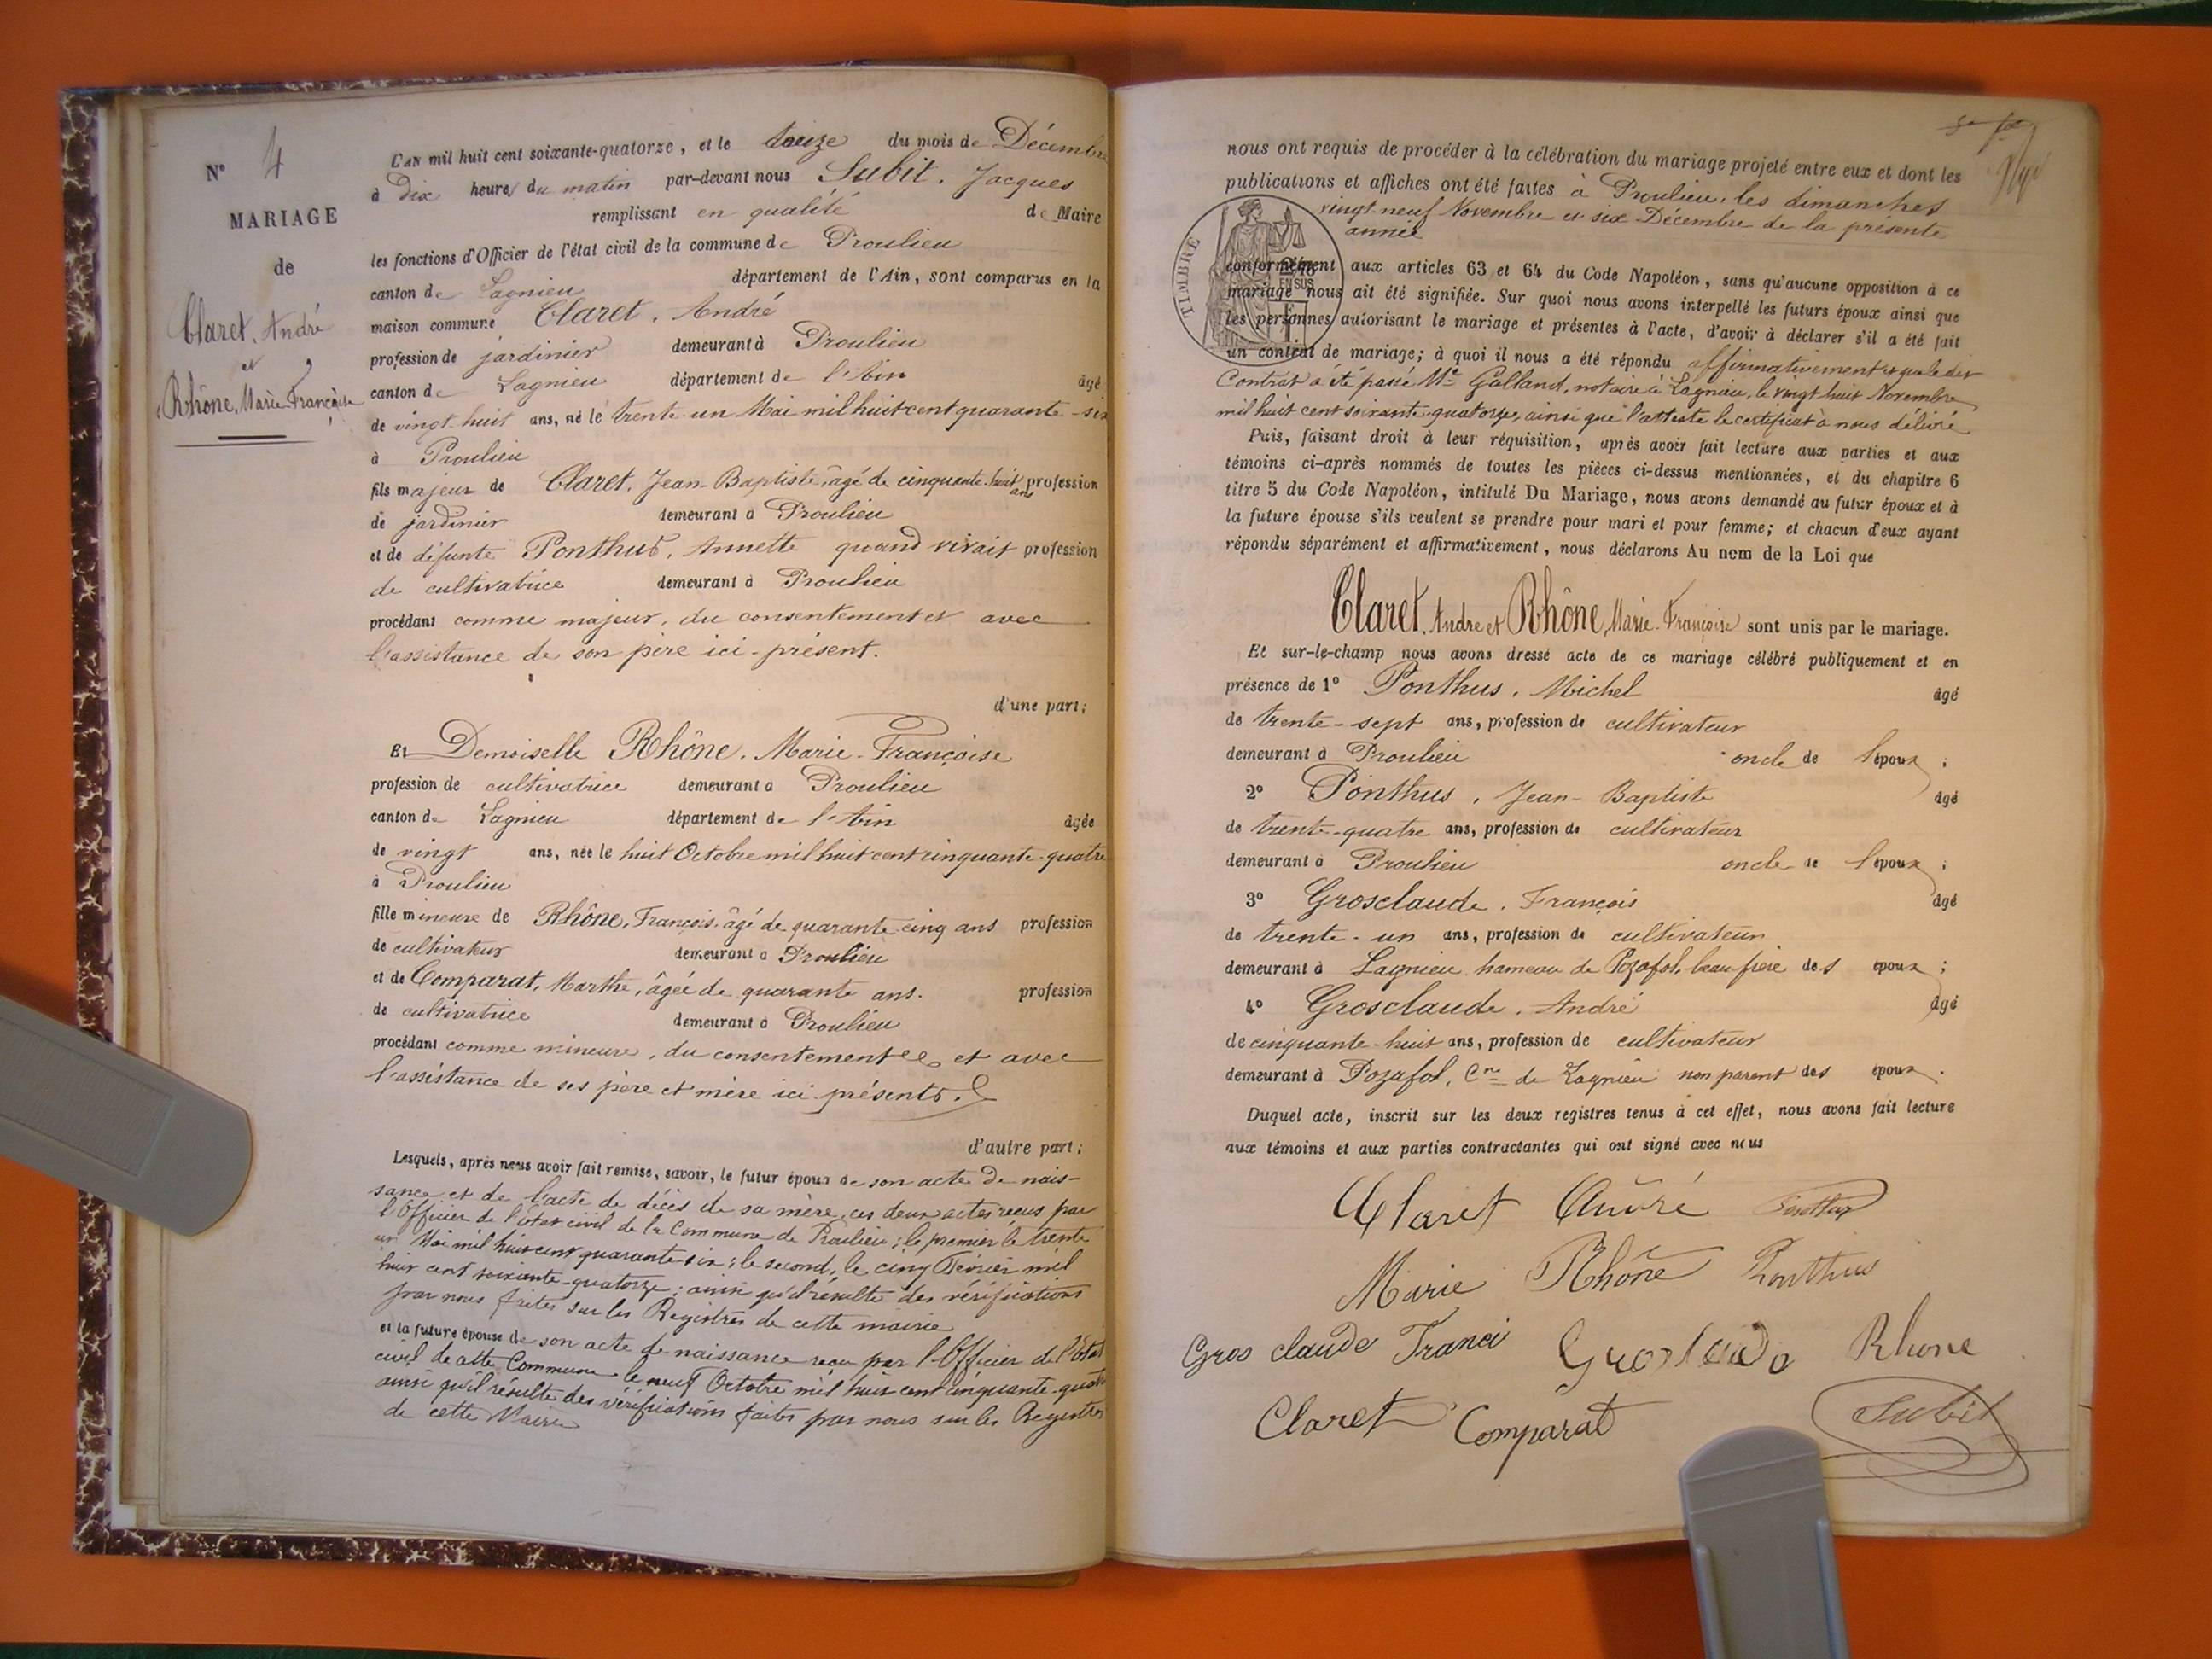 N° 4
MARIAGE
de
Claret, André
et
Rhône, Marie-Françoise
L'AN mil huit cent soixante-quatorze, et le du mois de Décembre
à Dix heures du matin par-devant nous Subit. Jacques
remplissant en qualité de Maire
les fonctions d'Officier de l'état civil de la commune de Proulieu
canton de Lagnieu département de l'Ain, sont comparus en la
maison commune Claret. André
profession de jardinier demeurant à Proulieu
canton de Lagnieu département de l'Ain âgé
de vingt-huit ans, né le trente un Mai mil huit cent quarante-six
à Proulieu
fils majeur de Claret, Jean-Baptiste, âgé de cinquante-huit ans profession
de jardinier demeurant à Proulieu
et de défunte Ponthus, Annette quand vivait profession
de cultivatrice demeurant à Proulieu
procédant comme majeur, du consentement et avec
l'assistance de son père ici-présent.
d'une part;
Et Demoiselle Rhône. Marie-Françoise
profession de cultivatrice demeurant à Proulieu
canton de Lagnieu département de l'Ain âgée
de vingt ans, née le huit Octobre mil huit cent cinquante-quatre
à Proulieu
fille mineure de Rhône, François, âgé de quarante-cinq ans profession
de cultivateur demeurant à Proulieu
et de Comparat, Marthe, âgée de quarante ans. profession
de cultivatrice demeurant à Proulieu
procédant comme mineure, du consentement et avec
l'assistance de ses père et mère ici présents.
d'autre part;
Lesquels, après nous avoir fait remise, savoir, le futur époux de son acte de nais-
sance et de l'acte de décès de sa mère, ces deux actes reçus par
l'Officier de l'état civil de la Commune de Proulieu; le premier le trente
un Mai mil huit cent quarante-six; le second, le cinq Février mil
huit cent soixante-quatorze; ainsi qu'il résulte des vérifications
par nous faites sur les Registres de cette mairie
et la future épouse de son acte de naissance reçu par l'Officier de l'état
civil de cette Commune le neuf Octobre mil huit cent cinquante-quatre
ainsi qu'il résulte des vérifications faites par nous sur les Registres
de cette Mairie
nous ont requis de procéder à la célébration du mariage projeté entre eux et dont les
publications et affiches ont été faites à Proulieu, les dimanches
vingt neuf Novembre et six Décembre de la présente
année
TIMBRE
EN SUS
conformément aux articles 63 et 64 du Code Napoléon, sans qu'aucune opposition à ce
mariage nous ait été signifiée. Sur quoi nous avons interpellé les futurs époux ainsi que
les personnes autorisant le mariage et présentes à l'acte, d'avoir à déclarer s'il a été fait
un contrat de mariage; à quoi il nous a été répondu affirmativement et que le dit
Contrat a été passé Me Galland, notaire à Lagnieu, le vingt huit Novembre
mil huit cent soixante-quatorze, ainsi que l'atteste le certificat à nous délivré
Puis, faisant droit à leur réquisition, après avoir fait lecture aux parties et aux
témoins ci-après nommés de toutes les pièces ci-dessus mentionnées, et du chapitre 6
titre 5 du Code Napoléon, intitulé Du Mariage, nous avons demandé au futur époux et à
la future épouse s'ils veulent se prendre pour mari et pour femme; et chacun d'eux ayant
répondu séparément et affirmativement, nous déclarons Au nom de la Loi que
Claret, André et Rhône, Marie-Françoise sont unis par le mariage.
Et sur-le-champ nous avons dressé acte de ce mariage célébré publiquement et en
présence de 1° Ponthus, Michel âgé
de trente-sept ans, profession de cultivateur
demeurant à Proulieu oncle de l'époux;
2° Ponthus, Jean-Baptiste âgé
de trente-quatre ans, profession de cultivateur
demeurant à Proulieu oncle de l'époux;
3° Grosclaude. François âgé
de trente-un ans, profession de cultivateur
demeurant à Lagnieu hameau de Pozafol, beau-frère des époux;
4° Grosclaude. André âgé
de cinquante-huit ans, profession de cultivateur
demeurant à Pozafol, Cne de Lagnieu non parent des époux.
Duquel acte, inscrit sur les deux registres tenus à cet effet, nous avons fait lecture
aux témoins et aux parties contractantes qui ont signé avec nous
Claret André Ponthus
Marie Rhône Ponthus
Gros claude Franci Rhone
Claret Comparat Subit